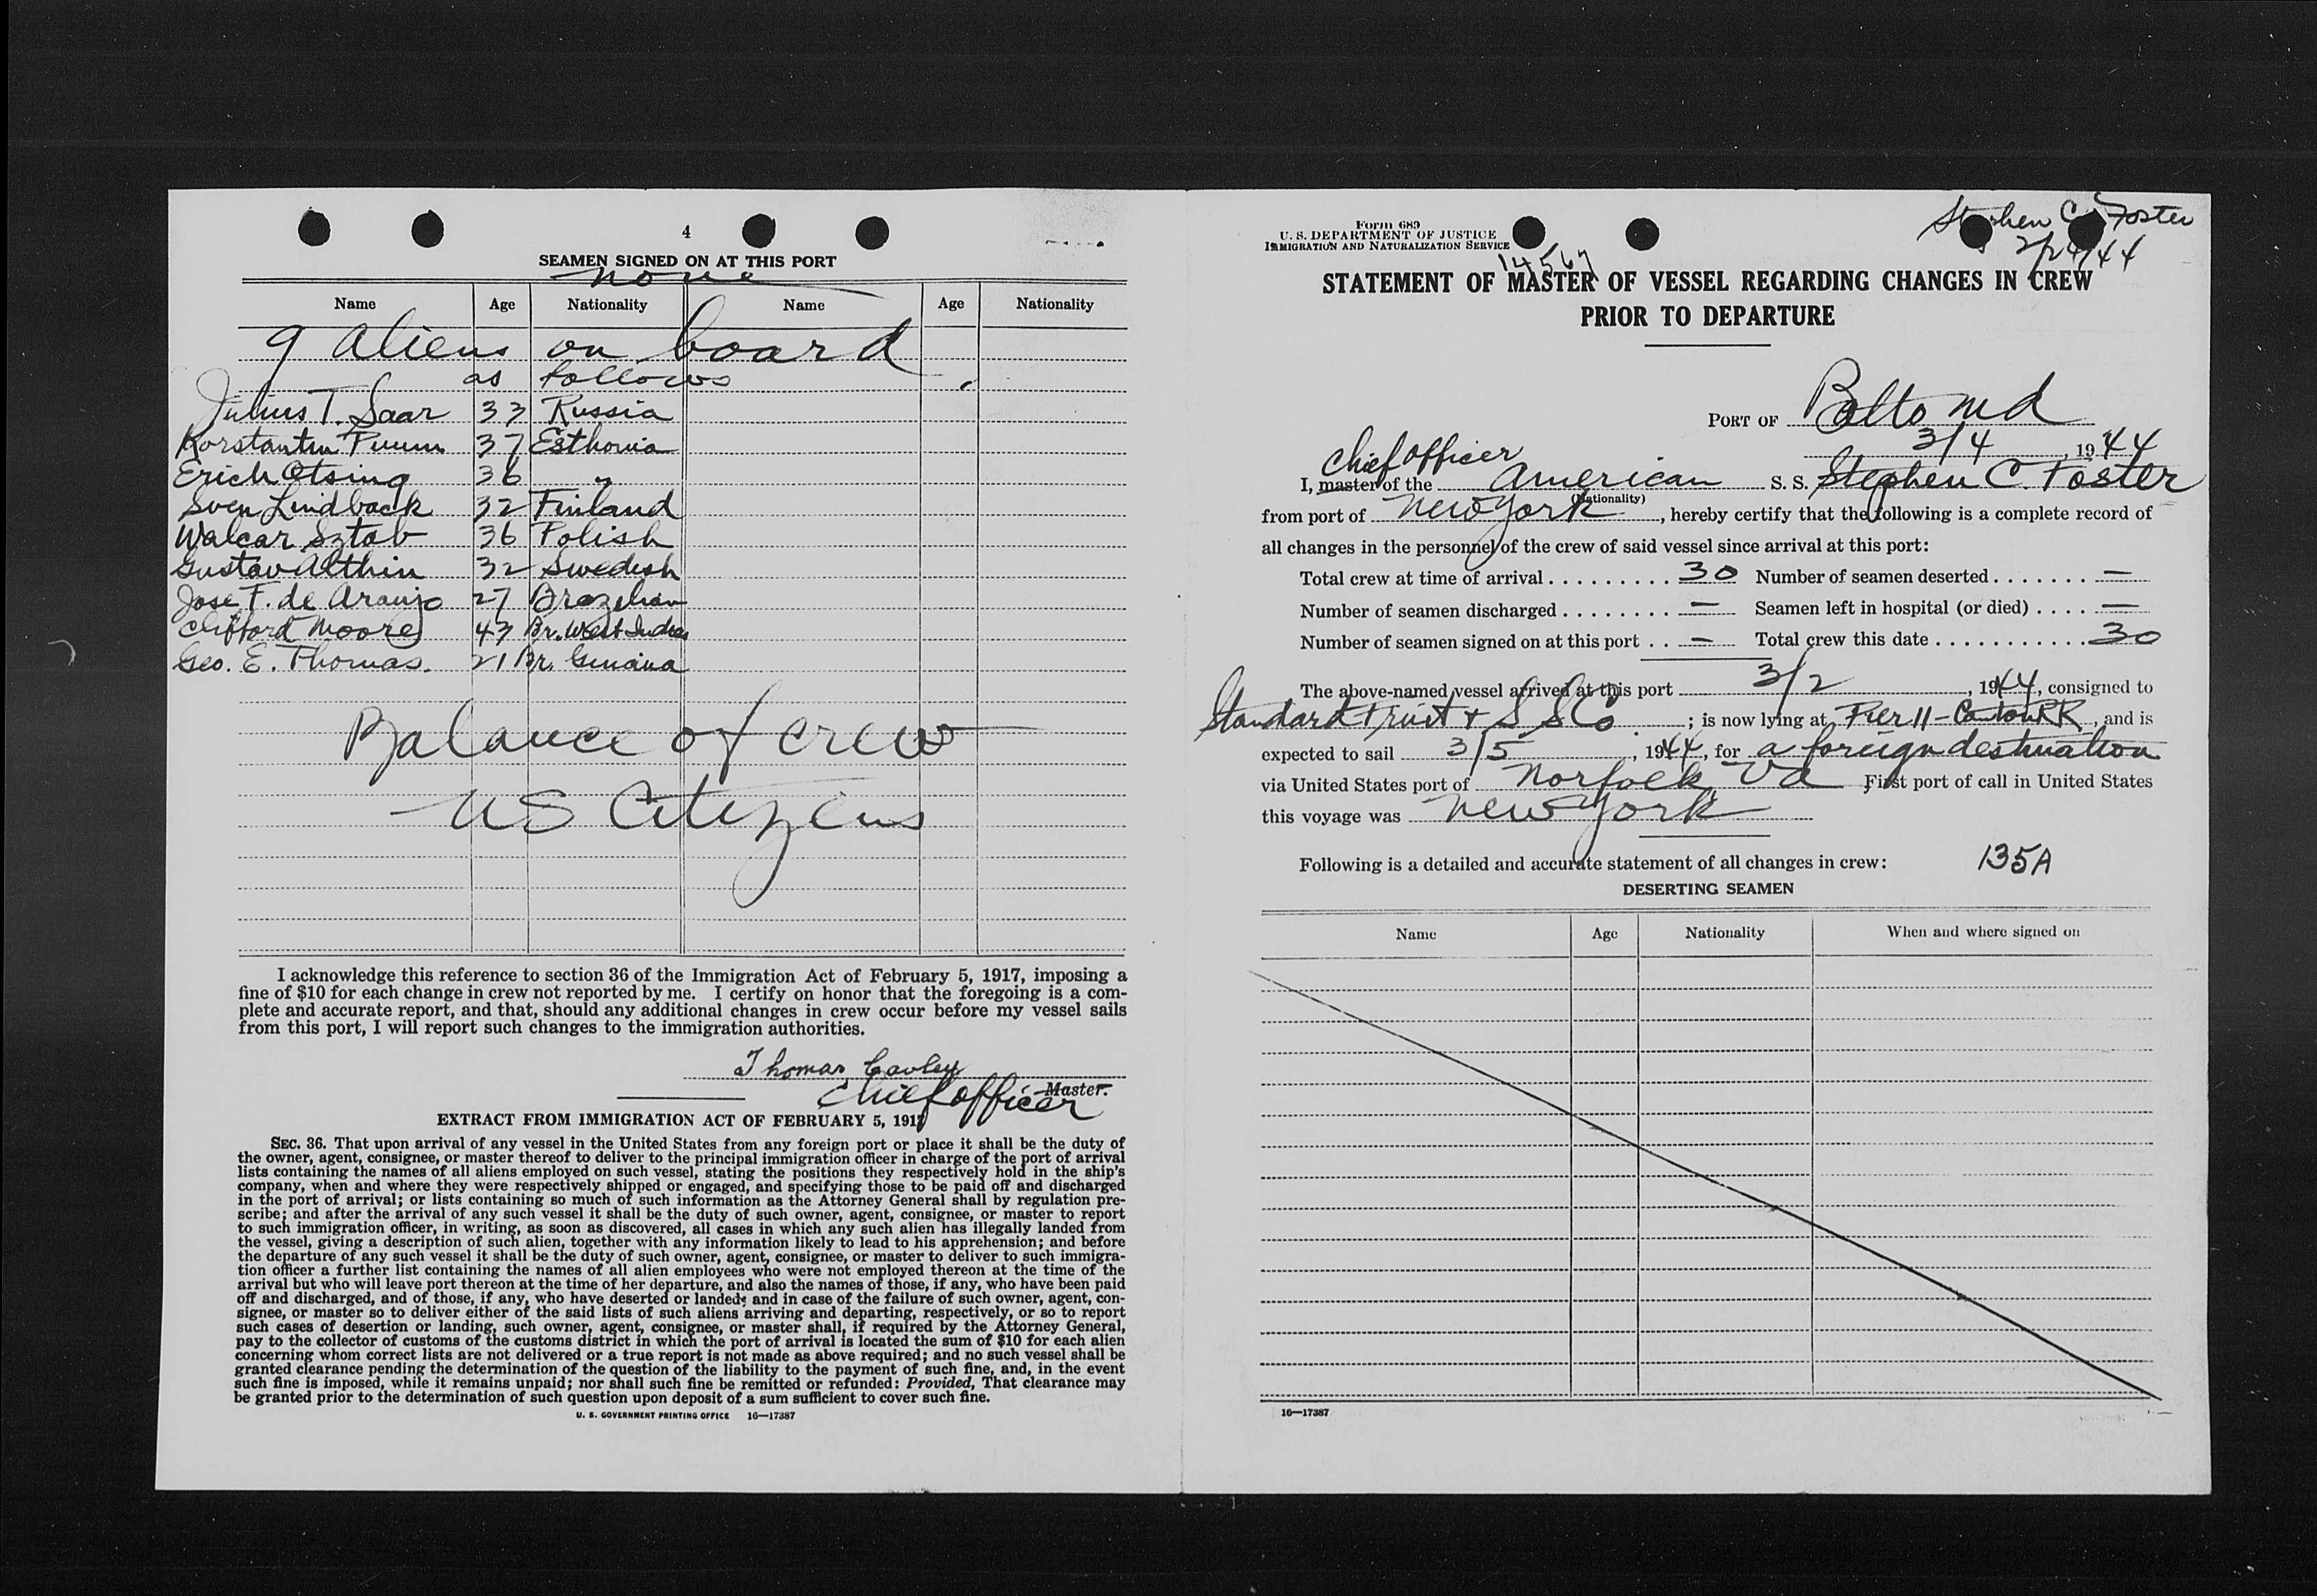 4
SEAMEN SIGNED ON AT THIS PORT
none
Name Age Nationality Name Age Nationality
9 aliens on board
as follows
Julius T. Saar 33 Russia
Konstantin Puum 37 Esthonia
Erich Otsing 36 "
Sven Lindback 32 Finland
Walcar Sztab 36 Polish
Gustav Althin 32 Swedish
Jose F. de Araujo 27 Brazelian
Clifford Moore 43 Br. West Indies
Geo. E. Thomas. 21 Br. Guiana
Balance of crew
US Citizens
I acknowledge this reference to section 36 of the Immigration Act of February 5, 1917, imposing a
fine of $10 for each change in crew not reported by me. I certify on honor that the foregoing is a com-
plete and accurate report, and that, should any additional changes in crew occur before my vessel sails
from this port, I will report such changes to the immigration authorities.
Thomas Cavley
Master.
Chief officer
EXTRACT FROM IMMIGRATION ACT OF FEBRUARY 5, 1917
SEC. 36. That upon arrival of any vessel in the United States from any foreign port or place it shall be the duty of
the owner, agent, consignee, or master thereof to deliver to the principal immigration officer in charge of the port of arrival
lists containing the names of all aliens employed on such vessel, stating the positions they respectively hold in the ship's
company, when and where they were respectively shipped or engaged, and specifying those to be paid off and discharged
in the port of arrival; or lists containing so much of such information as the Attorney General shall by regulation pre-
scribe; and after the arrival of any such vessel it shall be the duty of such owner, agent, consignee, or master to report
to such immigration officer, in writing, as soon as discovered, all cases in which any such alien has illegally landed from
the vessel, giving a description of such alien, together with any information likely to lead to his apprehension; and before
the departure of any such vessel it shall be the duty of such owner, agent, consignee, or master to deliver to such immigra-
tion officer a further list containing the names of all alien employees who were not employed thereon at the time of the
arrival but who will leave port thereon at the time of her departure, and also the names of those, if any, who have been paid
off and discharged, and of those, if any, who have deserted or landed; and in case of the failure of such owner, agent, con-
signee, or master so to deliver either of the said lists of such aliens arriving and departing, respectively, or so to report
such cases of desertion or landing, such owner, agent, consignee, or master shall, if required by the Attorney General,
pay to the collector of customs of the customs district in which the port of arrival is located the sum of $10 for each alien
concerning whom correct lists are not delivered or a true report is not made as above required; and no such vessel shall be
granted clearance pending the determination of the question of the liability to the payment of such fine, and, in the event
such fine is imposed, while it remains unpaid; nor shall such fine be remitted or refunded: Provided, That clearance may
be granted prior to the determination of such question upon deposit of a sum sufficient to cover such fine.
U. S. GOVERNMENT PRINTING OFFICE 16—17387
Form 689
U. S. DEPARTMENT OF JUSTICE
IMMIGRATION AND NATURALIZATION SERVICE
14567
Stephen C Foster
2/24/44
STATEMENT OF MASTER OF VESSEL REGARDING CHANGES IN CREW
PRIOR TO DEPARTURE
PORT OF Balto Md
3/4, 1944
Chief officer
I, master of the American S. S. Stephen C Foster
(Nationality)
from port of New York, hereby certify that the following is a complete record of
all changes in the personnel of the crew of said vessel since arrival at this port:
Total crew at time of arrival 30 Number of seamen deserted —
Number of seamen discharged — Seamen left in hospital (or died) —
Number of seamen signed on at this port — Total crew this date 30
The above-named vessel arrived at this port 3/2, 1944, consigned to
Standard Fruit + S S Co; is now lying at Pier 11 - Canton RR, and is
expected to sail 3/5, 1944, for a foreign destination
via United States port of Norfolk, Va First port of call in United States
this voyage was New York
Following is a detailed and accurate statement of all changes in crew: 135A
DESERTING SEAMEN
Name Age Nationality When and where signed on
16—17387